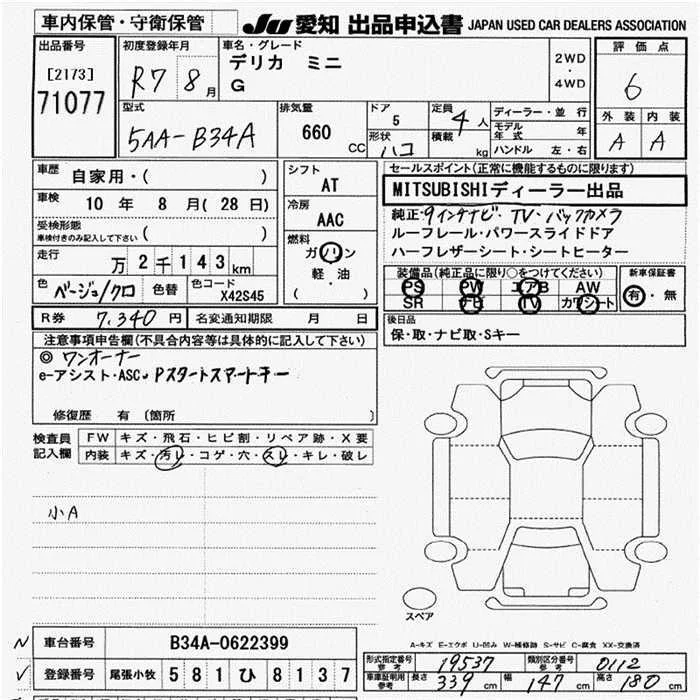 車内保管・守衛保管
JU 愛知 出品申込書 JAPAN USED CAR DEALERS ASSOCIATION
出品番号
[2173]
71077
初度登録年月
R7 8月
車名・グレード
デリカ ミニ
G
2WD
・
4WD
評価点
6
外装 内装
A A
型式
5AA-B34A
排気量
660
CC
ドア
5
形状
ハコ
定員
4人
積載
kg
ディーラー・並行
モデル年式 年
ハンドル 左・右
車歴
自家用・( )
車検
10 年 8 月( 28 日)
受検形態
車検付きのみ記入して下さい ( )
走行
万 2 千 1 4 3 km
色
ベージュ/クロ
色替
色コード
X42S45
シフト
AT
冷房
AAC
燃料
ガソリン
軽・油
( )
セールスポイント(正常に機能するものに限ります)
MITSUBISHIディーラー出品
純正・9インチナビ・TV・バックカメラ
ルーフレール・パワースライドドア
ハーフレザーシート・シートヒーター
装備品(純正品に限り○をつけてください)
PS PW エアB AW
SR ナビ TV カワシート
新車保証書
有・無
R券
7,340 円
名変通知期限 月 日
後日品
保・取・ナビ取・Sキー
注意事項申告欄(不具合内容等は具体的に記入して下さい)
◎ ワンオーナー
e-アシスト・ASC・Pスタートスマートキー
修復歴 有 〔箇所 〕
検査員
記入欄
FW キズ・飛石・ヒビ割・リペア跡・X要
内装 キズ・汚レ・コゲ・穴・スレ・キレ・破レ
小A
スペア
A-キズ E-エクボ U-凹み W-補修跡 S-サビ C-腐食 XX-交換済
N 車台番号 B34A-0622399
V 登録番号 尾張小牧 5 8 1 ひ 8 1 3 7
形式指定番号
参考
19537
類別区分番号
参考
0112
車庫証明用
参考
長さ 339 cm 幅 147 cm 高さ 180 cm